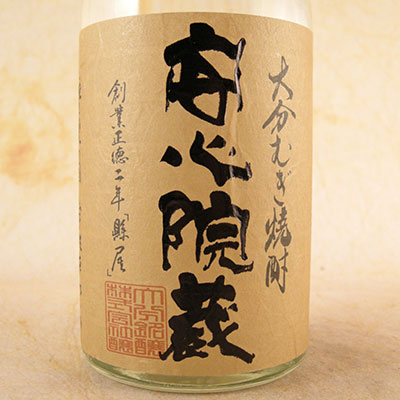 大分むぎ焼酎
安心院蔵
創業正徳二年「縣屋」